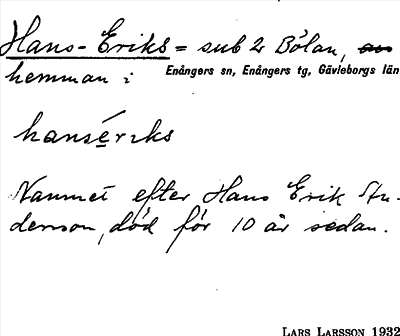 Hans-Eriks = sub 2 Bölan,
hemman i Enångers sn, Enångers tg, Gävleborgs län
hansériks
Namnet efter Hans Erik An-
derson, död för 10 år sedan.
LARS LARSSON 1932